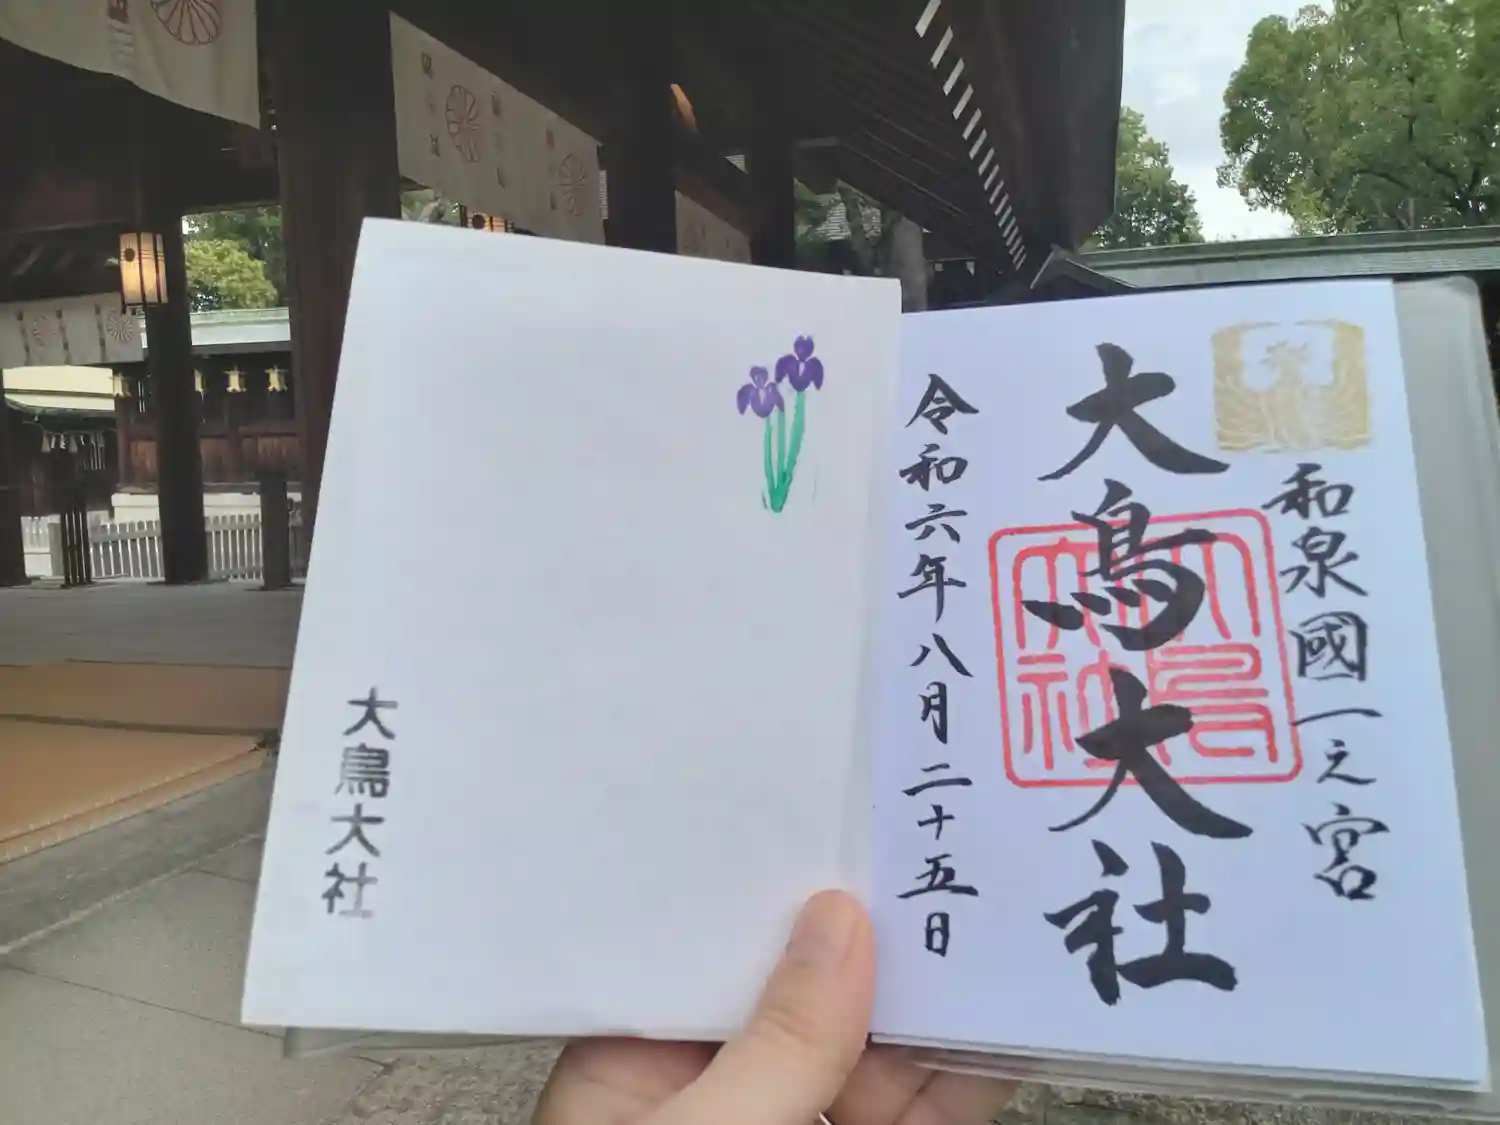 和泉國一之宮
大鳥大社
大鳥大社
令和六年八月二十五日
大鳥大社